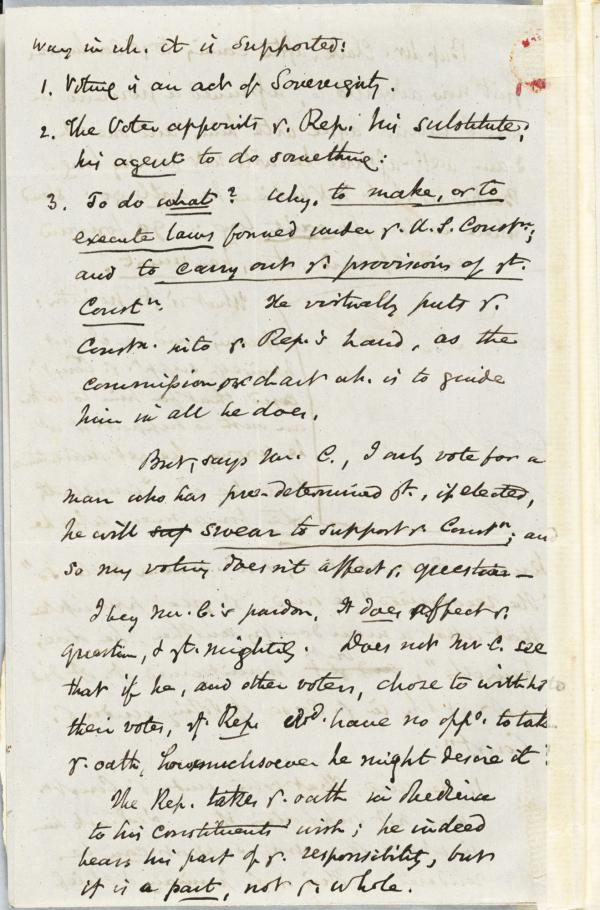 way in wh. it is supported:
1. Voting is an act of Sovereignty.
2. The Voter appoints y. Rep. his substitute;
his agent to do something:
3. To do what? Why, to make, or to
execute laws formed under y. U.S. Constn;
and to carry out y. provisions of yt.
Constn. He virtually puts y.
Constn. into y. Rep.'s hand, as the
commission or chart wh. is to guide
him in all he does.
But, says Mr. C., I only vote for a
man who has pre-determined yt., if elected,
he will swear to support y. Constn; an
so my voting doesn't affect y. question—
I beg Mr. C.'s pardon. It does affect y.
question, & yt. mightily. Does not Mr. C. see
that if he, and other voters, chose to withho
their votes, y. Rep. wd. have no oppy. to take
y. oath, howmuchsoever he might desire it?
The Rep. takes y. oath in obedience
to his constituents' wish; he indeed
bears his part of y. responsibility, but
it is a part, not y. whole.